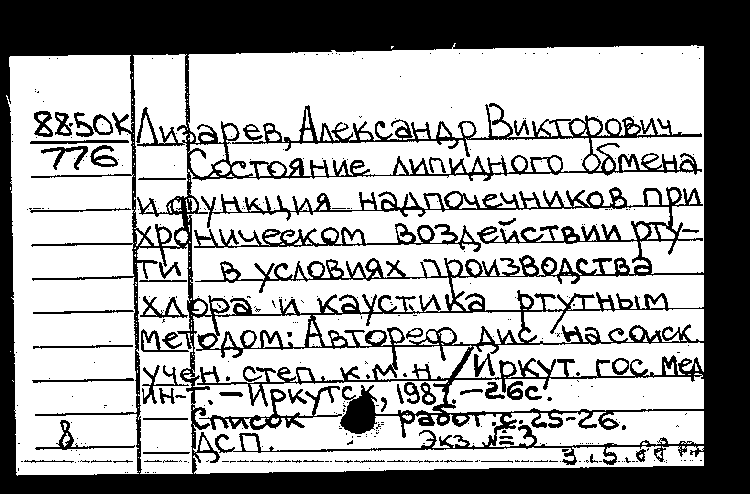 88-50К Лизарев, Александр Викторович.
776 Состояние липидного обмена
и функция надпочечников при
хроническом воздействии рту-
ти в условиях производства
хлора и каустика ртутным
методом: Автореф. дис. на соиск.
учен. степ. к.м.н. / Иркут. гос. мед
ин-т. – Иркутск, 1987. – 26с.
Список работ: с. 25-26.
8 ДСП. Экз. №3.
3.5.88